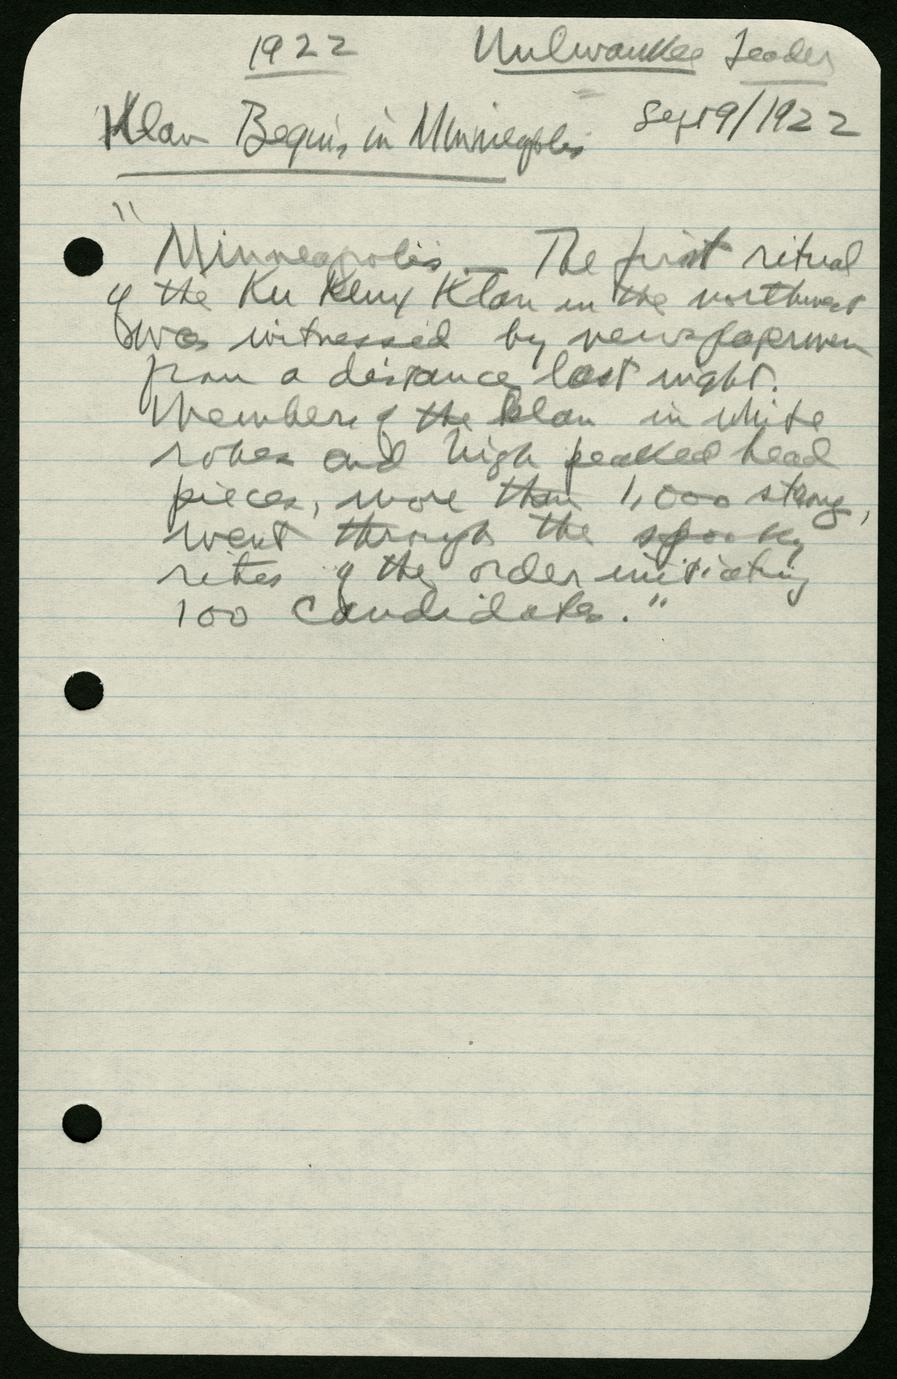 1922 Milwaukee Leader
Sept 9/1922
Klan Begins in Minneapolis
"
Minneapolis — The first ritual
of the Ku Klux Klan in the northwest
was witnessed by newspapermen
from a distance last night.
Members of the klan in white
robes and high peaked head
pieces, more than 1,000 strong,
went through the spooky
rites of the order initiating
100 candidates."